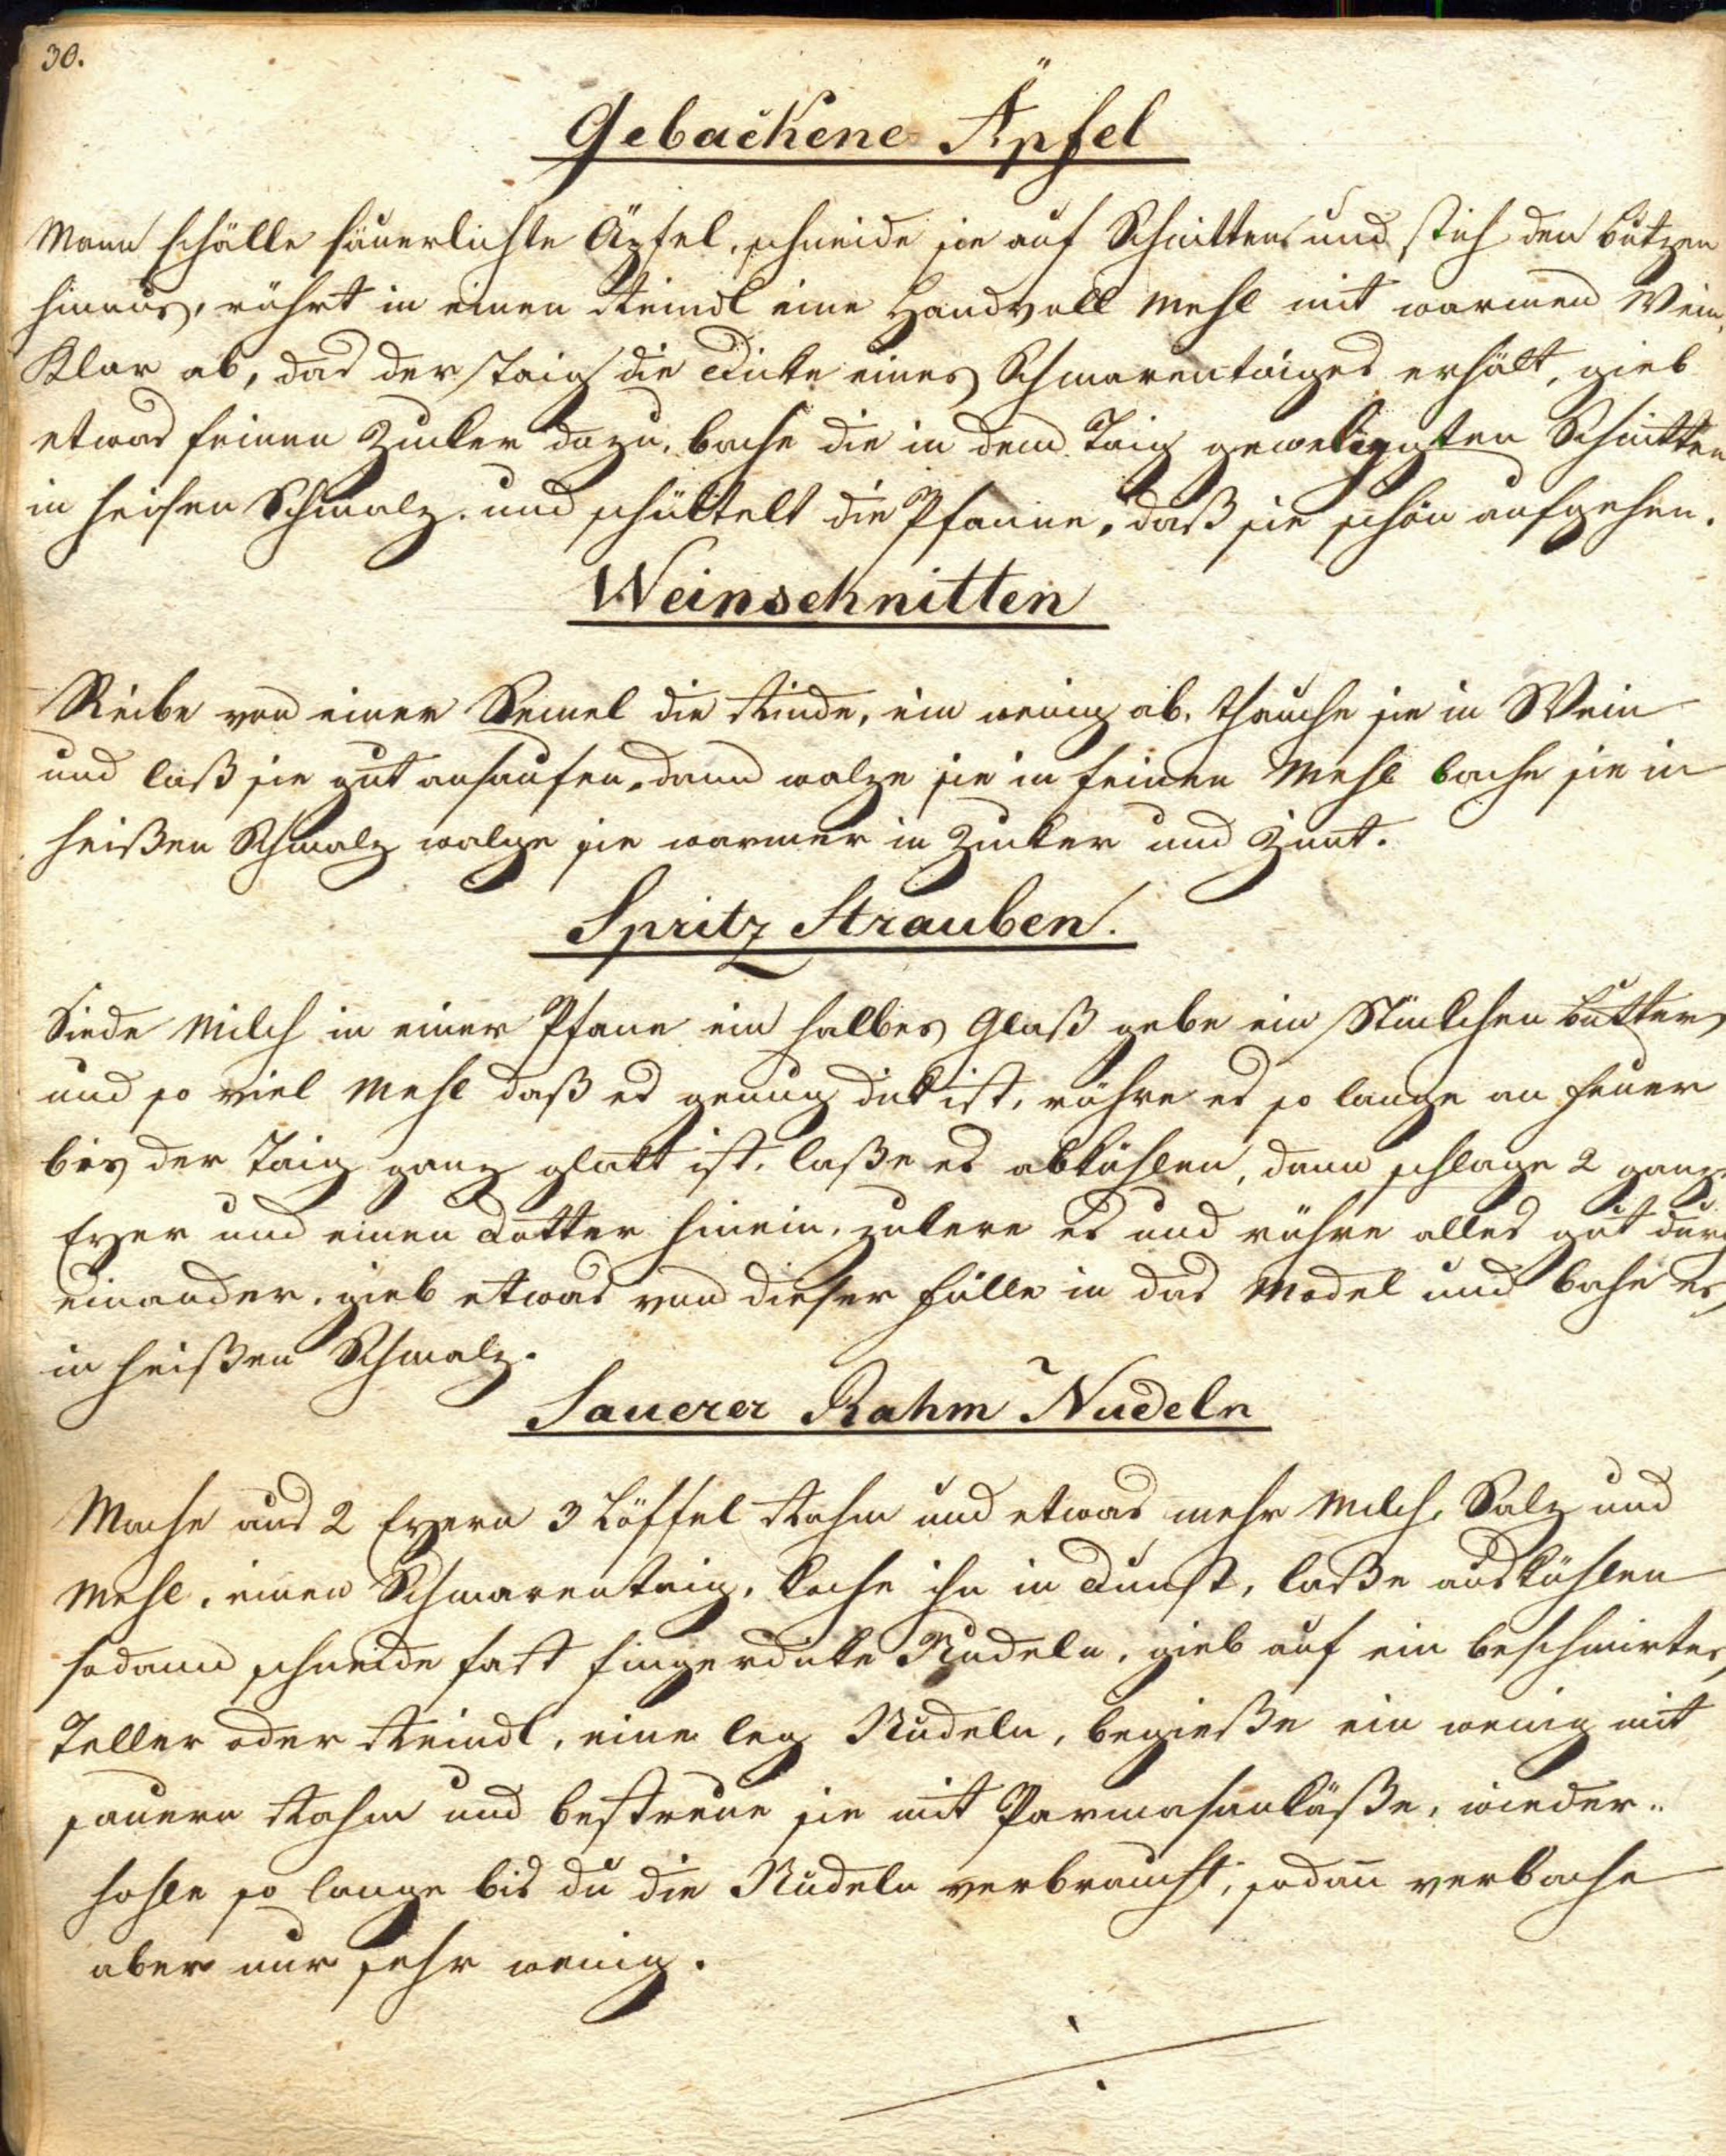 30.
Gebackene Äpfel
Mann schälle säuerlichte Äpfel, schneide sie auf Schnitten und stich den butzen
hinaus, rührt in einen Reindl eine Handvoll Mehl mit warmen Wein
Klar ab, das der Taig die Dicke eines Schmarentaiges erhält, gieb
etwas feinen Zucker dazu, bache die in dem Taig Schnitten
in heisen Schmalz, und schüttelt die Pfanne, daß sie schön aufgehen.
Weinschnitten
Reibe von einer Semel die Rinde, ein wenig ab, thauche sie in Wein
und laß sie gut ansaufen, dann walze sie in feinen Mehl bache sie in
heißen Schmalz walze sie warmer in Zucker und Zimt.
Spritz Strauben.
Siede Milch in einer Pfane ein halbes Glaß gebe ein Stückchen butter
und so viel Mehl daß es genug dick ist, rühre es so lange an feuer
bis der Taig ganz glatt ist, laße es abkühlen, dann schlage 2 ganze
Eyer und einen Dotter hinein, zukere es und rühre alles gut durch
einander, gieb etwas von dieser fülle in das Model und bache es
in heißen Schmalz.
Sauerer Rahm Nudeln
Mache aus 2 Eyern 3 Löffel Rahm und etwas mehr Milch, Salz und
Mehl, einen Schmarentaig, koche ihn in Dunst, laße auskühlen
sodann schneide fast fingerdicke Nudeln, gieb auf ein beschmirtes
Teller oder Reindl, eine leg Nudeln, begieße ein wenig mit
sauern Rahm und bestreue sie mit Parmasankäße, wieder-
hohle so lange bis du die Nudeln verbrauchst, sodan̄ verbache
aber nur sehr wenig.